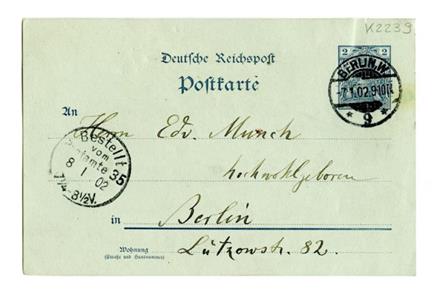 K2239
Deutsche Reichspost
Postkarte
2 2
BERLIN.W.
7.1.02.9-10N.
* 9 *
An
Herrn Edv. Munch
hochwohlgeboren
Bestellt
vom
Postamte 35
8 1 02
7¼-8½V.
in Berlin
Wohnung
(Straße und Hausnummer)
Lützowstr. 82.